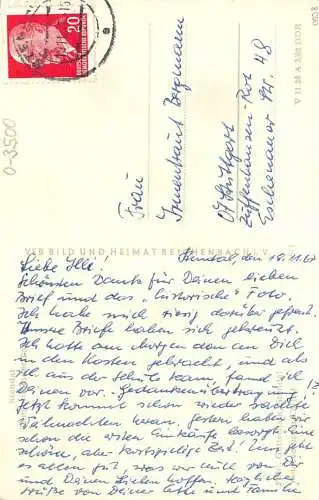 20
DEUTSCHE DEMOKRATISCHE REPUBLIK
V 11 28 A 2,50 DDR
0-3500
Frau
Irmentraut Bergmann
Stuttgart
Zuffenhausen-Rot
Eschenauer Str. 48
VEB BILD UND HEIMAT REICHENBACH i. V.
Stendal, den 18.11.67
Liebe Illi!
Schönsten Dank für Deinen lieben
Brief und das „historische" Foto.
Ich habe mich riesig darüber gefreut.
Unsere Briefe haben sich gekreuzt.
Ich hatte am Morgen den an Dich
in den Kasten gebracht, und als
ich aus der Schule kam, fand ich
Deinen vor. Gedankenübertragung!?
Jetzt kommt schon wieder sachte
Weihnachten heran. Gestern haben wir
schon die ersten Einkäufe besorgt. Eine
schöne, aber kostspielige Zeit! Uns geht
es allen gut, was wir auch von Dir
und Deinen Lieben hoffen. Herzliche
Grüße von Deiner